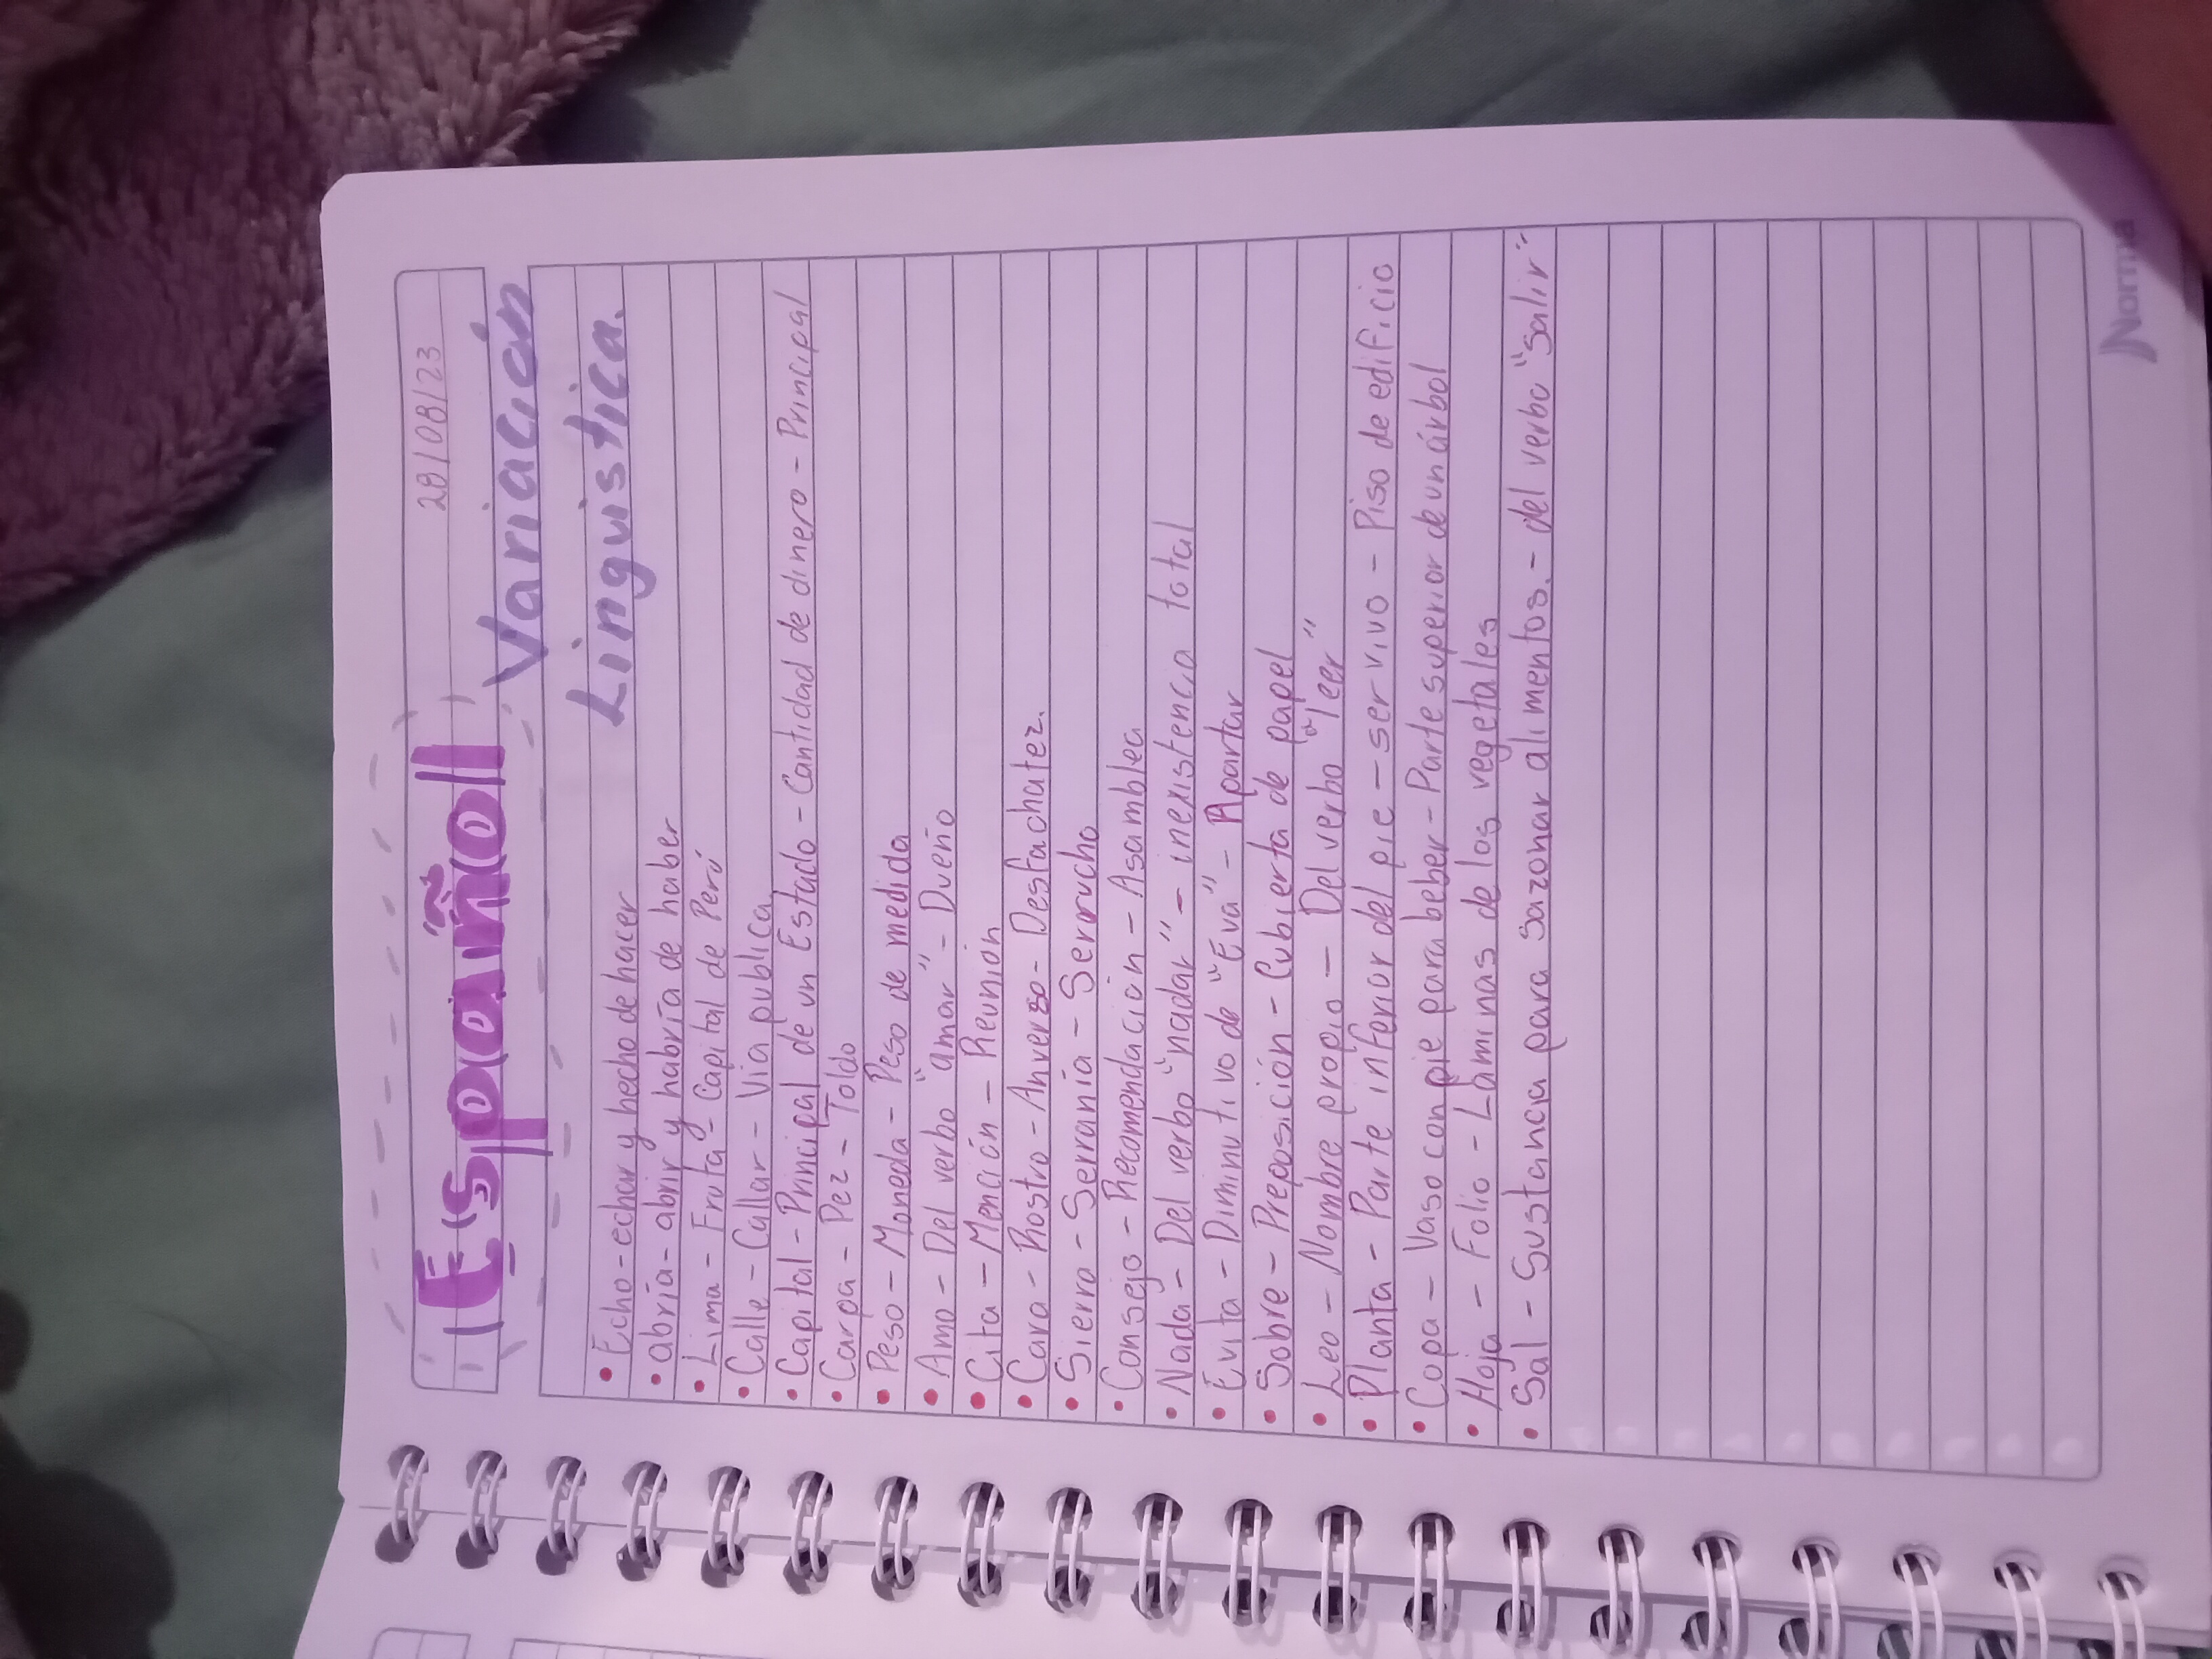 28/08/23
Español
Variación
Lingüística.
• Echo - echar y hecho de hacer
• abría - abrir y habría de haber
• Lima - Fruta - Capital de Perú
• Calle - Callar - Vía publica
• Capital - Principal de un Estado - Cantidad de dinero - Principal
• Carpa - Pez - Toldo
• Peso - Moneda - Peso de medida
• Amo - Del verbo "amar" - Dueño
• Cita - Mención - Reunión
• Cara - Rostro - Anverso - Desfachatez.
• Sierra - Serranía - Serrucho
• Consejo - Recomendación - Asamblea
• Nada - Del verbo "nadar" - inexistencia total
• Evita - Diminutivo de "Eva" - Apartar
• Sobre - Preposición - Cubierta de papel
• Leo - Nombre propio - Del verbo "leer"
• Planta - Parte inferior del pie - ser vivo - Piso de edificio
• Copa - Vaso con pie para beber - Parte superior de un árbol
• Hoja - Folio - Láminas de los vegetales
• Sal - Sustancia para sazonar alimentos. - del verbo "salir"
Norma